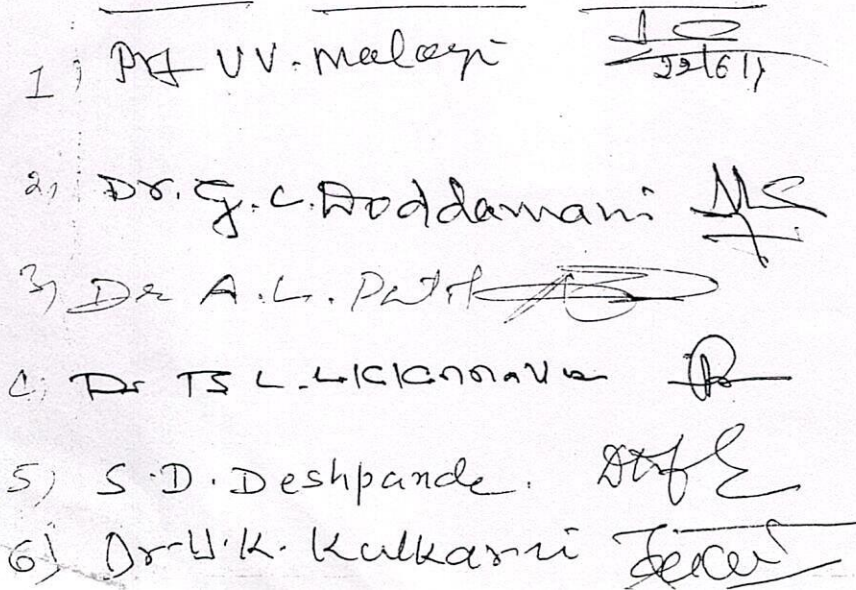 1) Prf V V. Malagi 22/6/17
2) Dr. G. C. Doddamani
3) Dr A. L. Patil
4) Dr B L. Lakkannavar
5) S. D. Deshpande.
6) Dr. U. K. Kulkarni